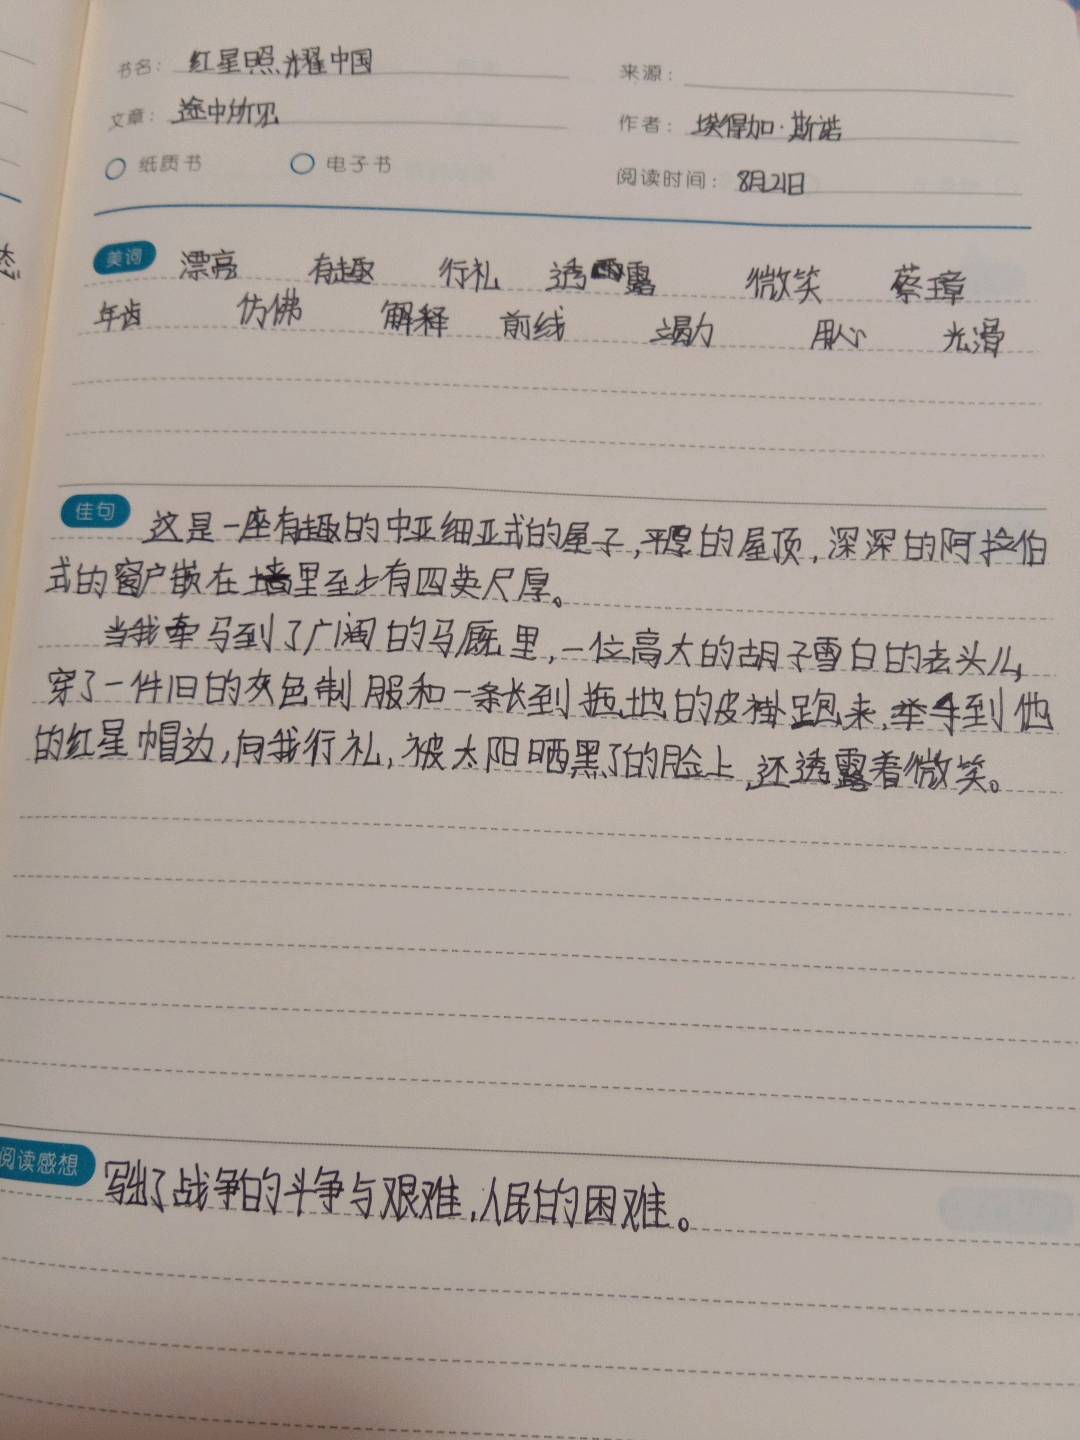 书名：红星照耀中国
来源：
文章：途中所见
作者：埃得加·斯诺
纸质书 电子书
阅读时间：8月21日
美词 漂亮 有趣 行礼 透露 微笑 蔡璋
年齿 仿佛 解释 前线 竭力 用心 光滑
佳句 这是一座有趣的中亚细亚式的屋子，平厚的屋顶，深深的阿拉伯
式的窗户嵌在墙里至少有四英尺厚。
当我牵马到了广阔的马厩里，一位高大的胡子雪白的老头儿
穿了一件旧的灰色制服和一条长到拖地的皮褂跑来，举手到他
的红星帽边，向我行礼，被太阳晒黑了的脸上，还透露着微笑。
阅读感想 写出了战争的斗争与艰难，人民的困难。